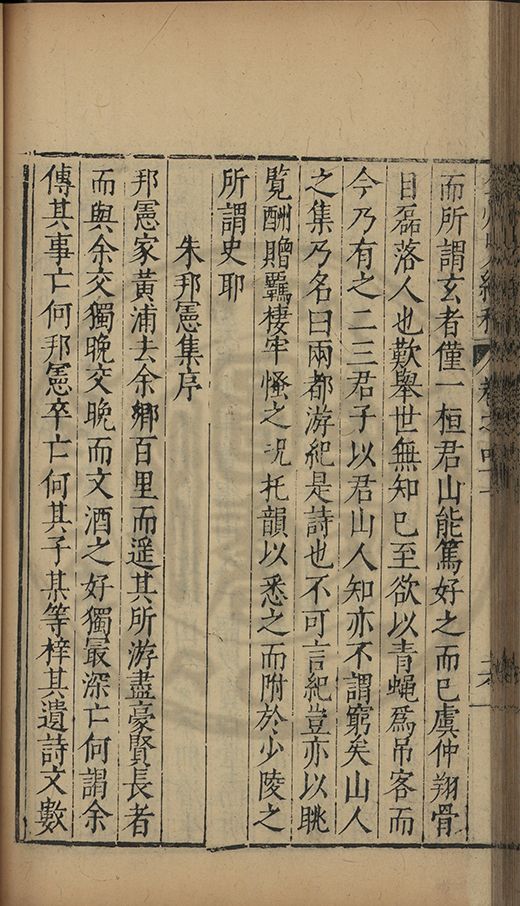 而所謂玄者僅一桓君山能篤好之而已虞仲翔骨
目磊落人也歎舉世無知已至欲以青蠅爲吊客而
今乃有之二三君子以君山人知亦不謂窮矣山人
之集乃名曰兩都游紀是詩也不可言紀豈亦以眺
覧酬贈羈棲牢慅之况托韻以悉之而附於少陵之
所謂史耶
朱邦憲集序
邦憲家黃浦去余鄉百里而遥其所游盡豪賢長者
而與余交獨晚交晚而文酒之好獨最深亡何謂余
傳其事亡何邦憲卒亡何其子某等梓其遺詩文數